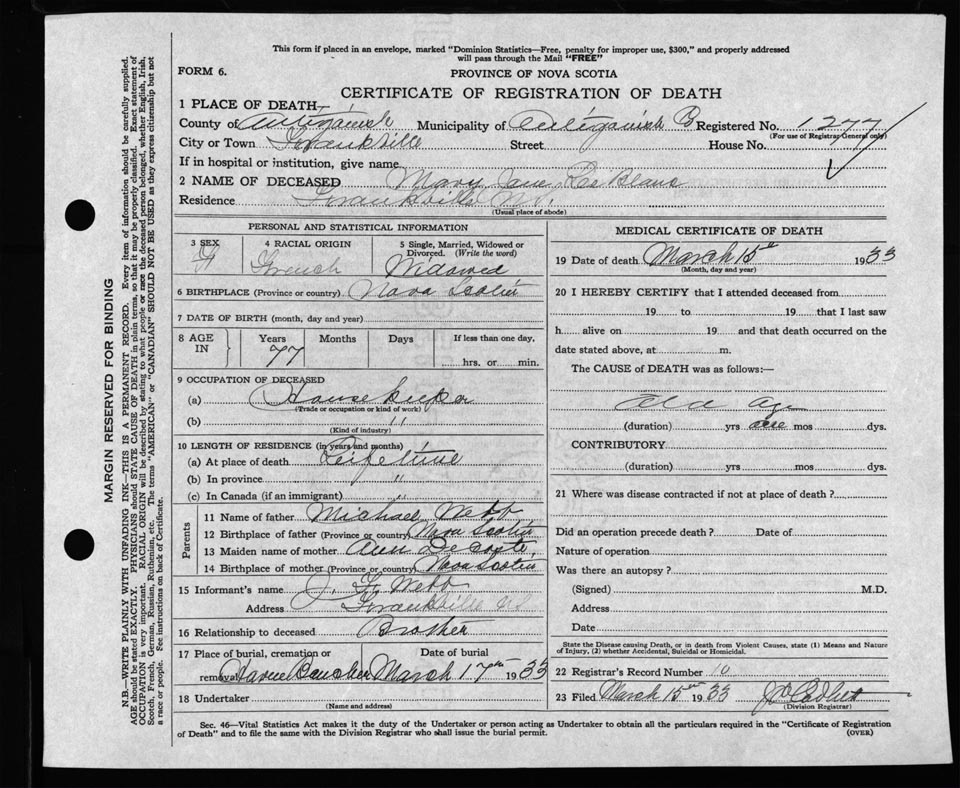 This form if placed in an envelope, marked "Dominion Statistics—Free, penalty for improper use, $300," and properly addressed
will pass through the Mail "FREE"
FORM 6.
PROVINCE OF NOVA SCOTIA
CERTIFICATE OF REGISTRATION OF DEATH
1 PLACE OF DEATH—
County of Antigonish Municipality of Antigonish Registered No. 1277
(For use of Registrar General only)
City or Town Frankville Street House No.
If in hospital or institution, give name
2 NAME OF DECEASED Mary Jane Le Blanc
Residence Frankville N.S.
(Usual place of abode)
PERSONAL AND STATISTICAL INFORMATION
3 SEX
F
4 RACIAL ORIGIN
French
5 Single, Married, Widowed or
Divorced. (Write the word)
Widowed
6 BIRTHPLACE (Province or country) Nova Scotia
7 DATE OF BIRTH (month, day and year)
8 AGE
IN
Years
77
Months
Days
If less than one day,
hrs. or min.
9 OCCUPATION OF DECEASED
(a) House keeper
(Trade or occupation or kind of work)
(b) "
(Kind of industry)
10 LENGTH OF RESIDENCE (in years and months)
(a) At place of death Life time
(b) In province "
(c) In Canada (if an immigrant) "
Parents
11 Name of father Michael Webb
12 Birthplace of father (Province or country) Nova Scotia
13 Maiden name of mother Ann De Coste
14 Birthplace of mother (Province or country) Nova Scotia
15 Informant's name J. Webb
Address Frankville NS
16 Relationship to deceased Brother
17 Place of burial, cremation or
removal Havre Boucher
Date of burial
March 17th 1933
18 Undertaker
(Name and address)
MEDICAL CERTIFICATE OF DEATH
19 Date of death March 15th 1933
(Month, day and year)
20 I HEREBY CERTIFY that I attended deceased from
19 to 19 that I last saw
h alive on 19 and that death occurred on the
date stated above, at m.
The CAUSE of DEATH was as follows:—
Old Age
(duration) yrs mos dys.
CONTRIBUTORY
(duration) yrs mos dys.
21 Where was disease contracted if not at place of death?
Did an operation precede death? Date of
Nature of operation
Was there an autopsy?
(Signed) M.D.
Address
Date
State the Disease causing Death, or in death from Violent Causes, state (1) Means and Nature
of Injury, (2) whether Accidental, Suicidal or Homicidal.
22 Registrar's Record Number 10
23 Filed March 15th 1933
(Division Registrar)
Sec. 46—Vital Statistics Act makes it the duty of the Undertaker or person acting as Undertaker to obtain all the particulars required in the "Certificate of Registration
of Death" and to file the same with the Division Registrar who shall issue the burial permit.
(OVER)
MARGIN RESERVED FOR BINDING
N.B.—WRITE PLAINLY WITH UNFADING INK—THIS IS A PERMANENT RECORD. Every item of information should be carefully supplied.
AGE should be stated EXACTLY. PHYSICIANS should STATE CAUSE OF DEATH in plain terms, so that it may be properly classified. Exact statement of
OCCUPATION is very important. RACIAL ORIGIN will be described by stating to what people or race the deceased person belonged, whether English, Irish,
Scotch, French, German, Russian, Ruthenian, etc. The terms "AMERICAN" or "CANADIAN" SHOULD NOT BE USED as they express citizenship but not
a race or people. See instructions on back of Certificate.